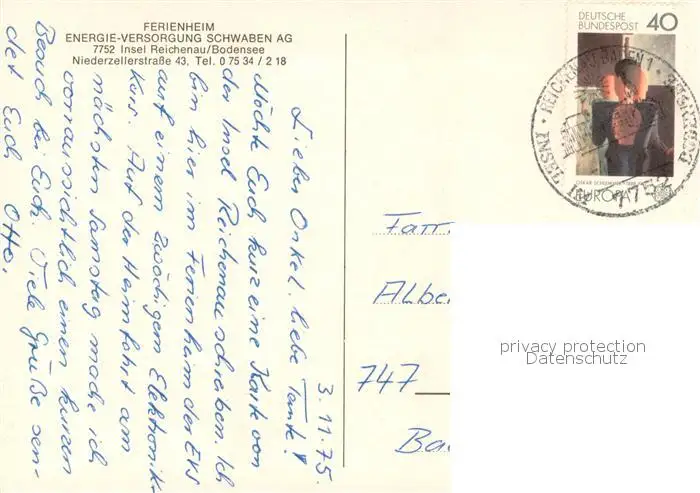 FERIENHEIM
ENERGIE-VERSORGUNG SCHWABEN AG
7752 Insel Reichenau/Bodensee
Niederzellerstraße 43, Tel. 0 75 34 / 2 18
3.11.75.
Lieber Onkel, liebe Tante!
Möchte Euch kurz eine Karte von
der Insel Reichenau schreiben. Ich
bin hier im Ferienheim der EVS
auf einem 2wöchigem Elektronik-
Kurs. Auf der Heimfahrt am
nächsten Samstag mache ich
vorraussichtlich einen kurzen
Besuch bei Euch. Viele Grüße sen-
det Euch Otto.
DEUTSCHE
BUNDESPOST 40
OSKAR SCHLEMMER
EUROPA
REICHENAU, BADEN 1
INSEL IM BODENSEE
7752
Fam
Albe
747
Ba
privacy protection
Datenschutz